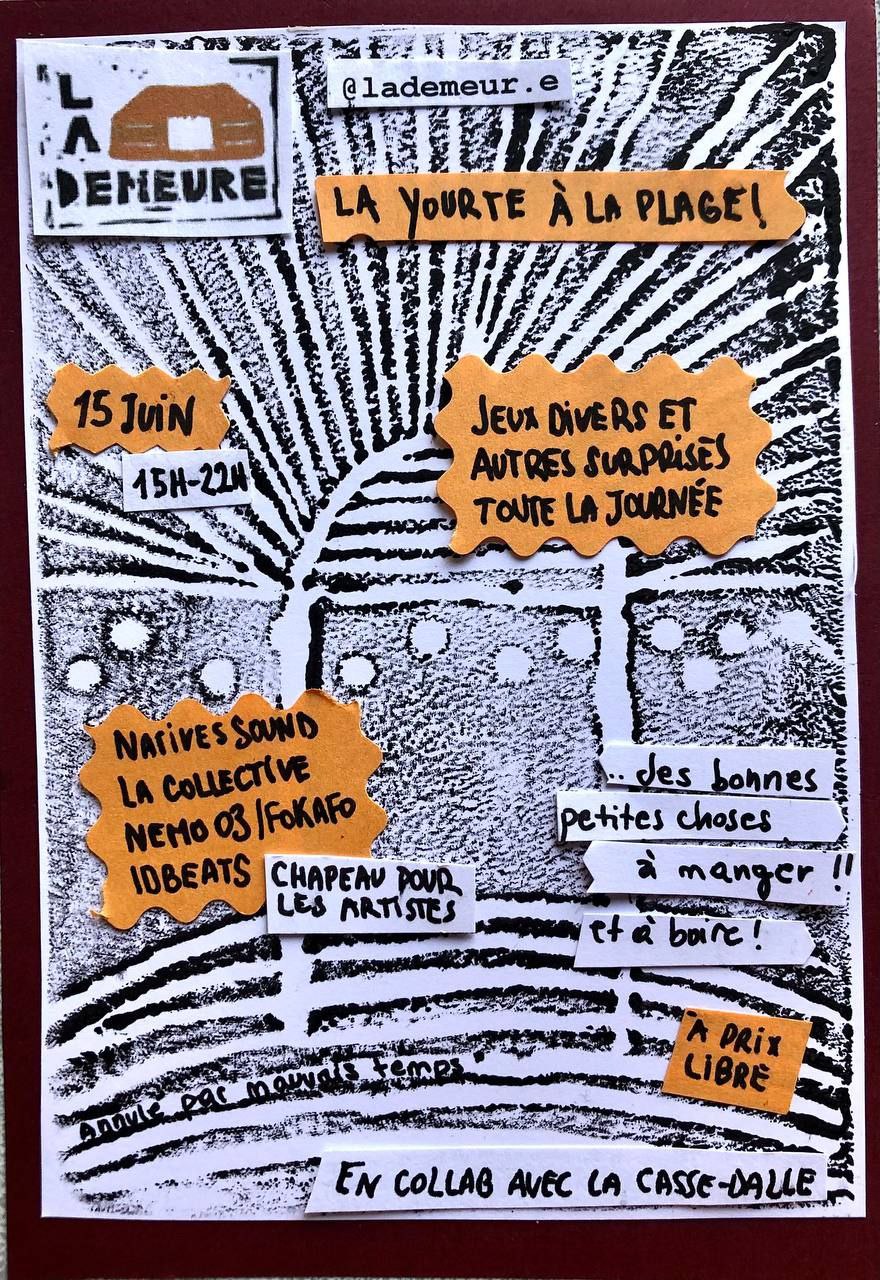 LA
DEMEURE
@lademeur.e
LA YOURTE À LA PLAGE!
15 JUIN
15H-22H
JEUX DIVERS ET
AUTRES SURPRISES
TOUTE LA JOURNÉE
NATIVES SOUND
LA COLLECTIVE
NEMO 03/FOKAFO
IDBEATS
CHAPEAU POUR
LES ARTISTES
... des bonnes
petites choses
à manger !!
et à boire !
À PRIX
LIBRE
Annulé par mauvais temps
EN COLLAB AVEC LA CASSE-DALLE